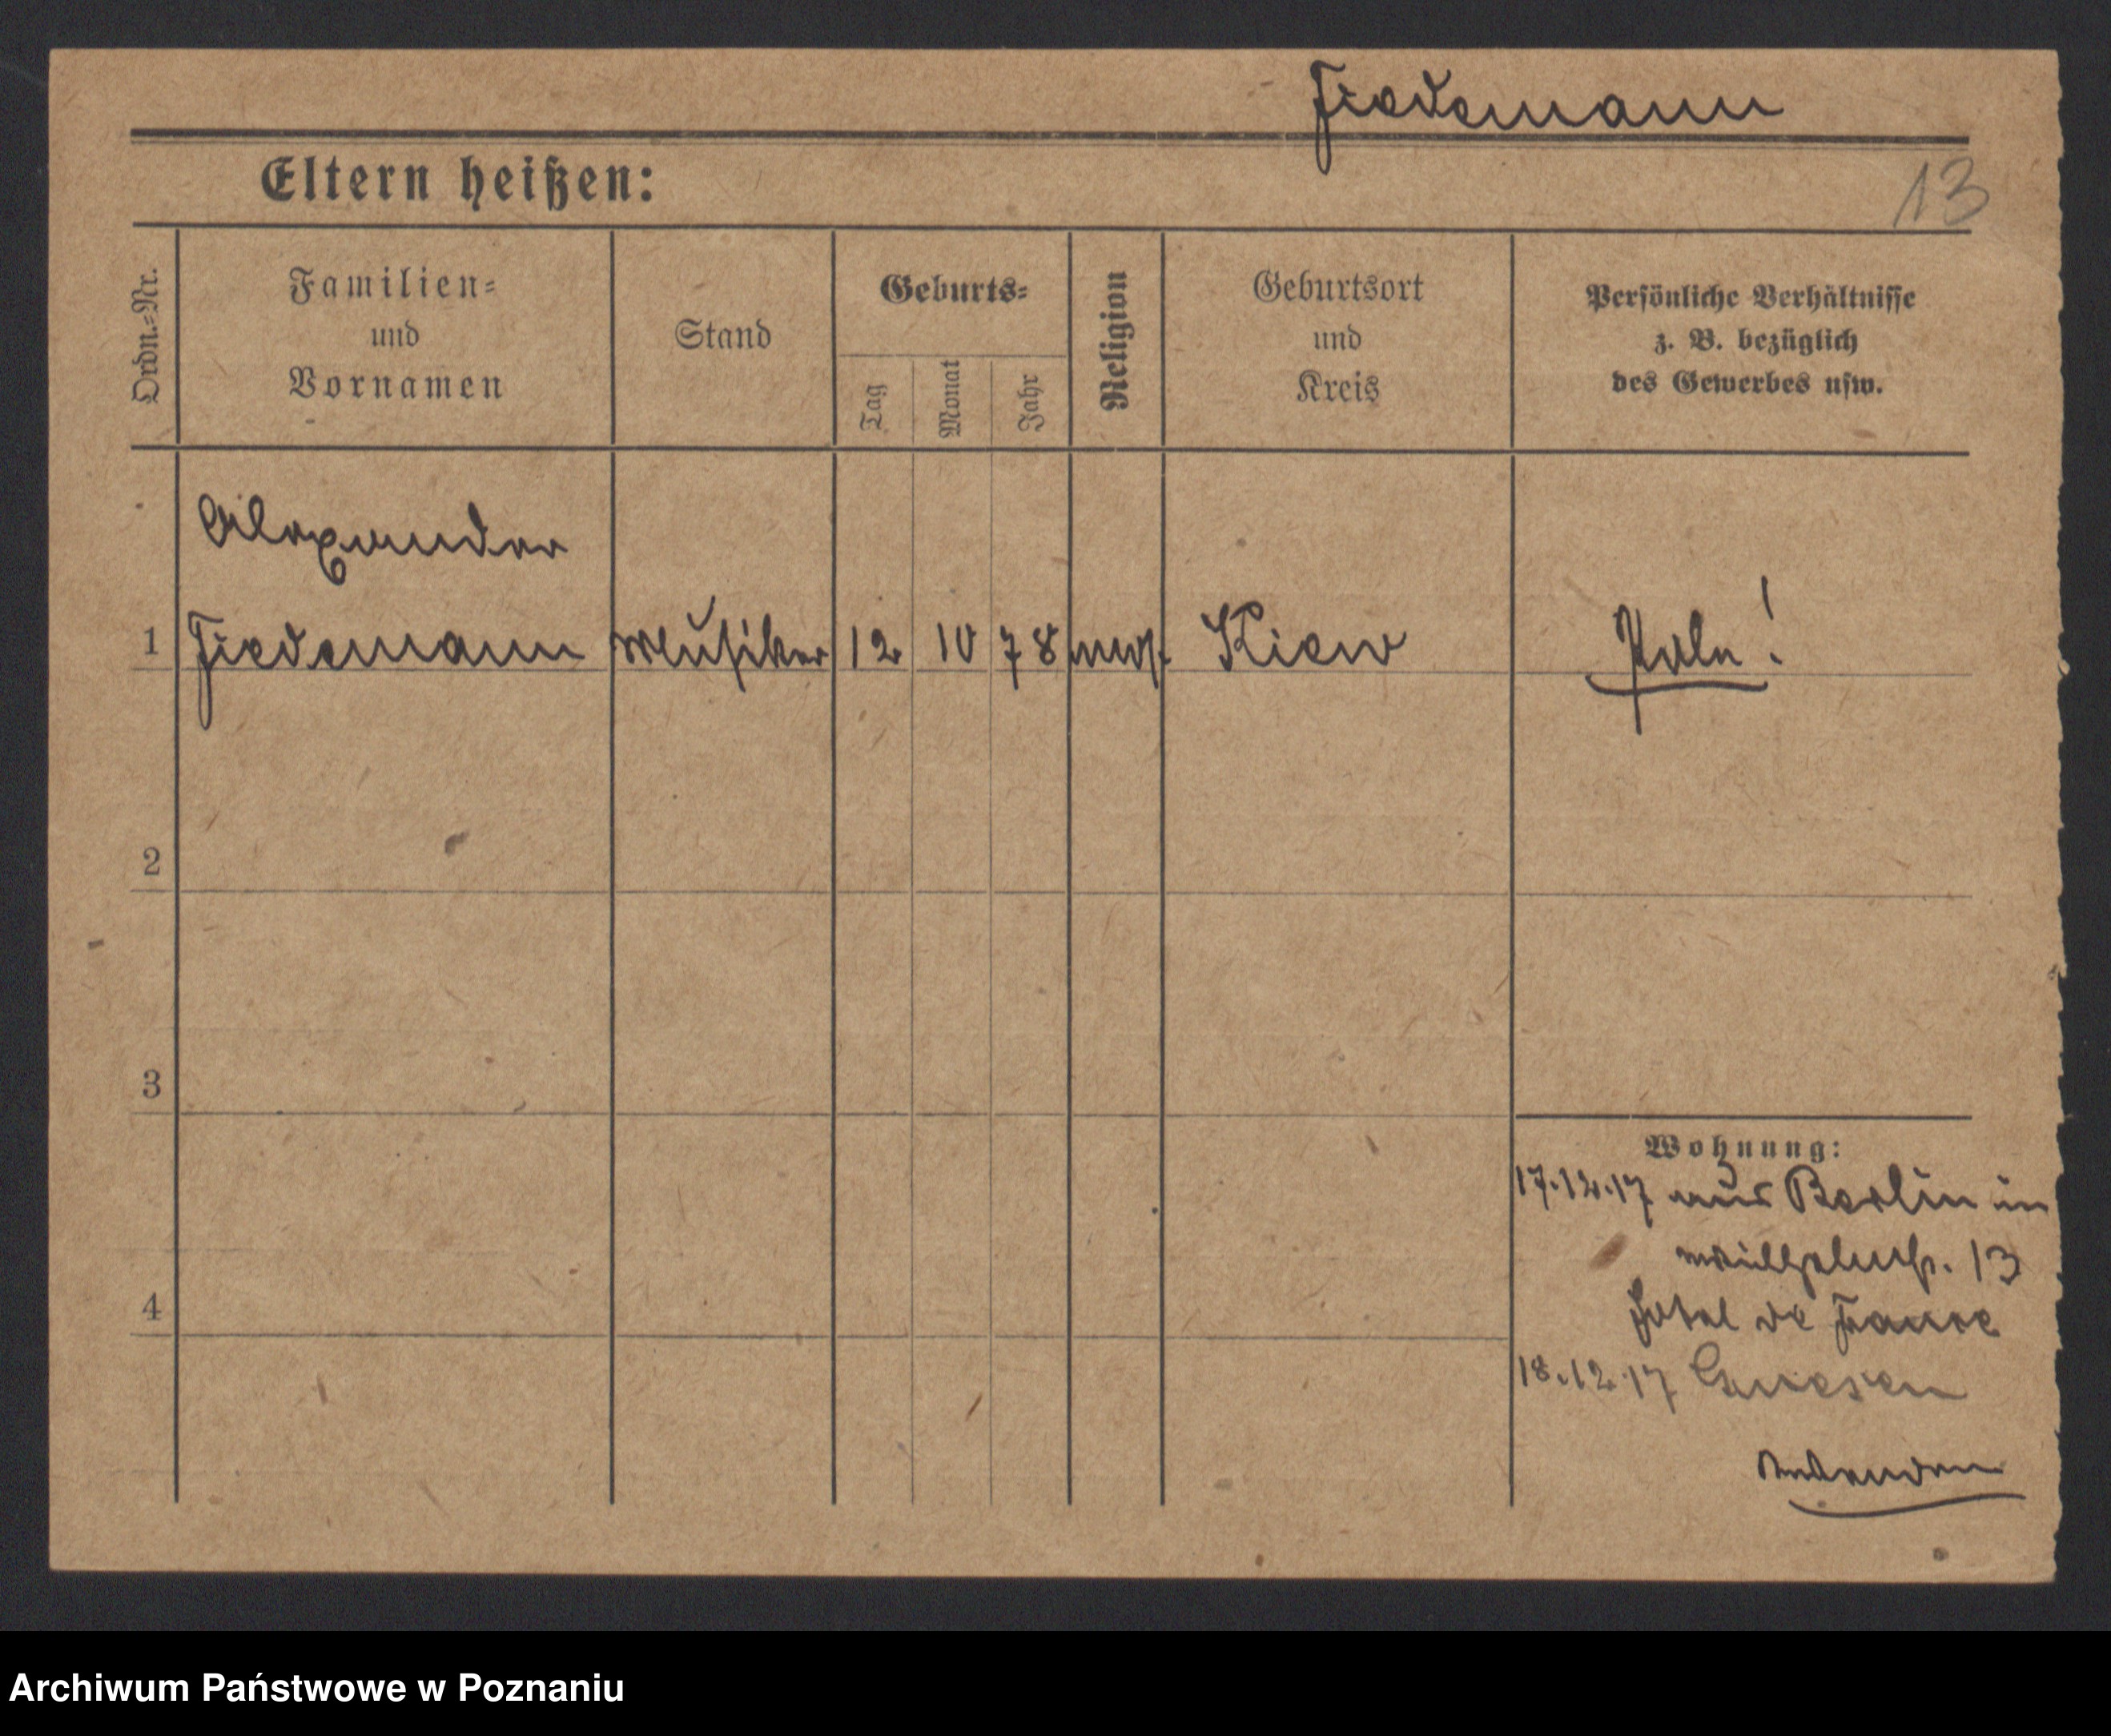 Fiedemann
Eltern heißen:
13
Ordn.=Nr.
Familien=
und
Vornamen
Stand
Geburts=
Tag
Monat
Jahr
Religion
Geburtsort
und
Kreis
Persönliche Verhältnisse
z. B. bezüglich
des Gewerbes usw.
Alexander
1 Fiedemann Musiker 12 10 78 mos. Kiew Poln!
2
3
4
Wohnung:
17.12.17 aus Berlin in
Wilhelmstr. 13
Hotel de France
18.12.17 Gnesen
Archiwum Państwowe w Poznaniu